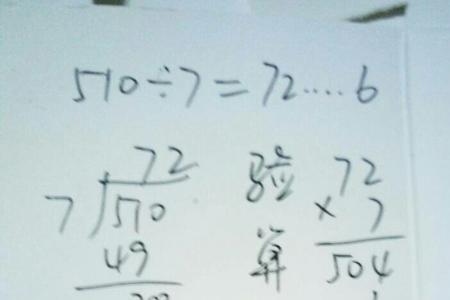 510÷7=72....6
72
7)510
49
验算
72
×7
504